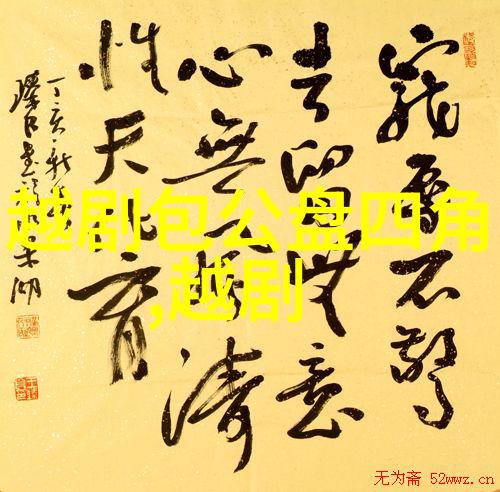 越剧包公盘四角
,越剧
寵辱不驚
去留無意
心無波濤
性天化育
丁亥
无为斋 52wwz.cn